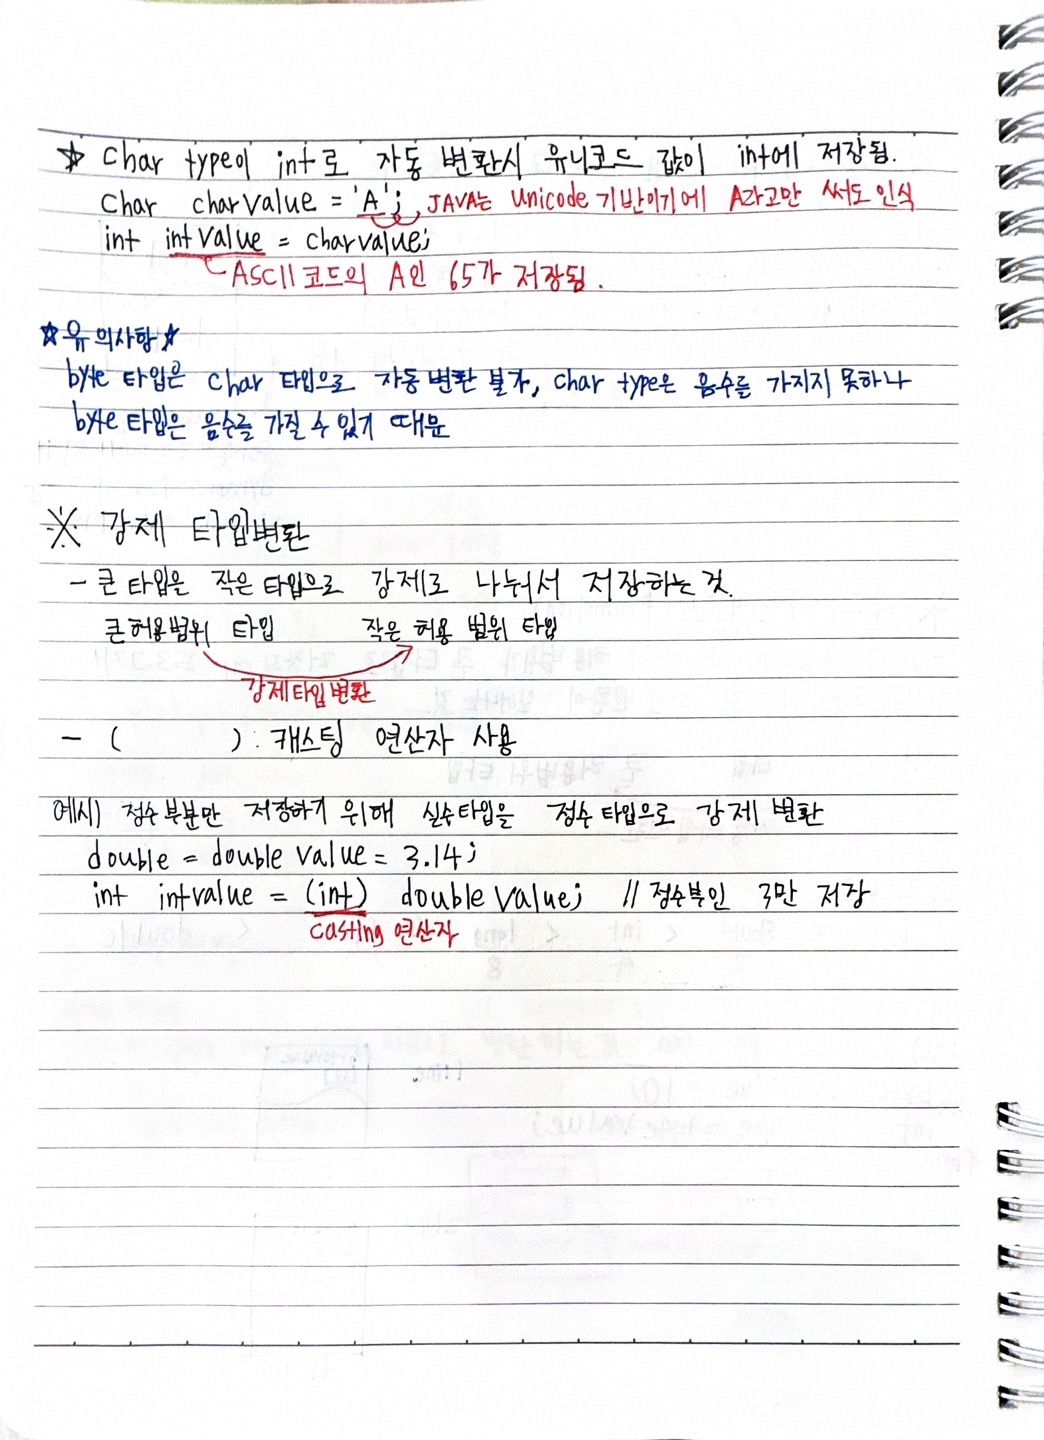 ☆ char type이 int로 자동 변환시 유니코드 값이 int에 저장됨.
char charvalue = 'A'; JAVA는 Unicode 기반이기에 A라고만 써도 인식
int intvalue = charvalue;
ASCII 코드의 A인 65가 저장됨.
☆유의사항☆
byte 타입은 char 타입으로 자동 변환 불가, char type은 음수를 가지지 못하나
byte 타입은 음수를 가질 수 있기 때문
※ 강제 타입변환
- 큰 타입을 작은 타입으로 강제로 나눠서 저장하는 것.
큰 허용범위 타입 작은 허용 범위 타입
강제타입변환
- ( ) : 캐스팅 연산자 사용
예시) 정수 부분만 저장하기 위해 실수타입을 정수 타입으로 강제 변환
double = double value = 3.14;
int intvalue = (int) double value; // 정수부인 3만 저장
casting 연산자